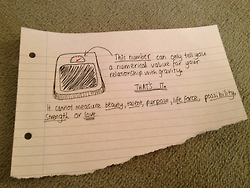 This number can only tell you
a numerical value for your
relationship with gravity.
THAT'S IT.
It cannot measure beauty, talent, purpose, life force, possibility,
strength or love